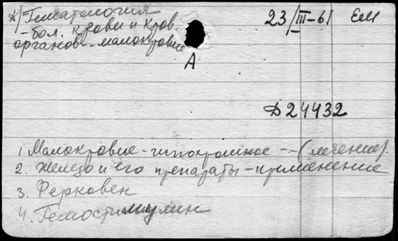 А) Гематология
23/III-61 ЕМ
- бол. крови и кров.
органов - малокровие
А
Д24432
1. Малокровие - гипохромное -- (лечение).
2. Железо и его препараты - применение
3. Ферковен
4. Гемостимулин